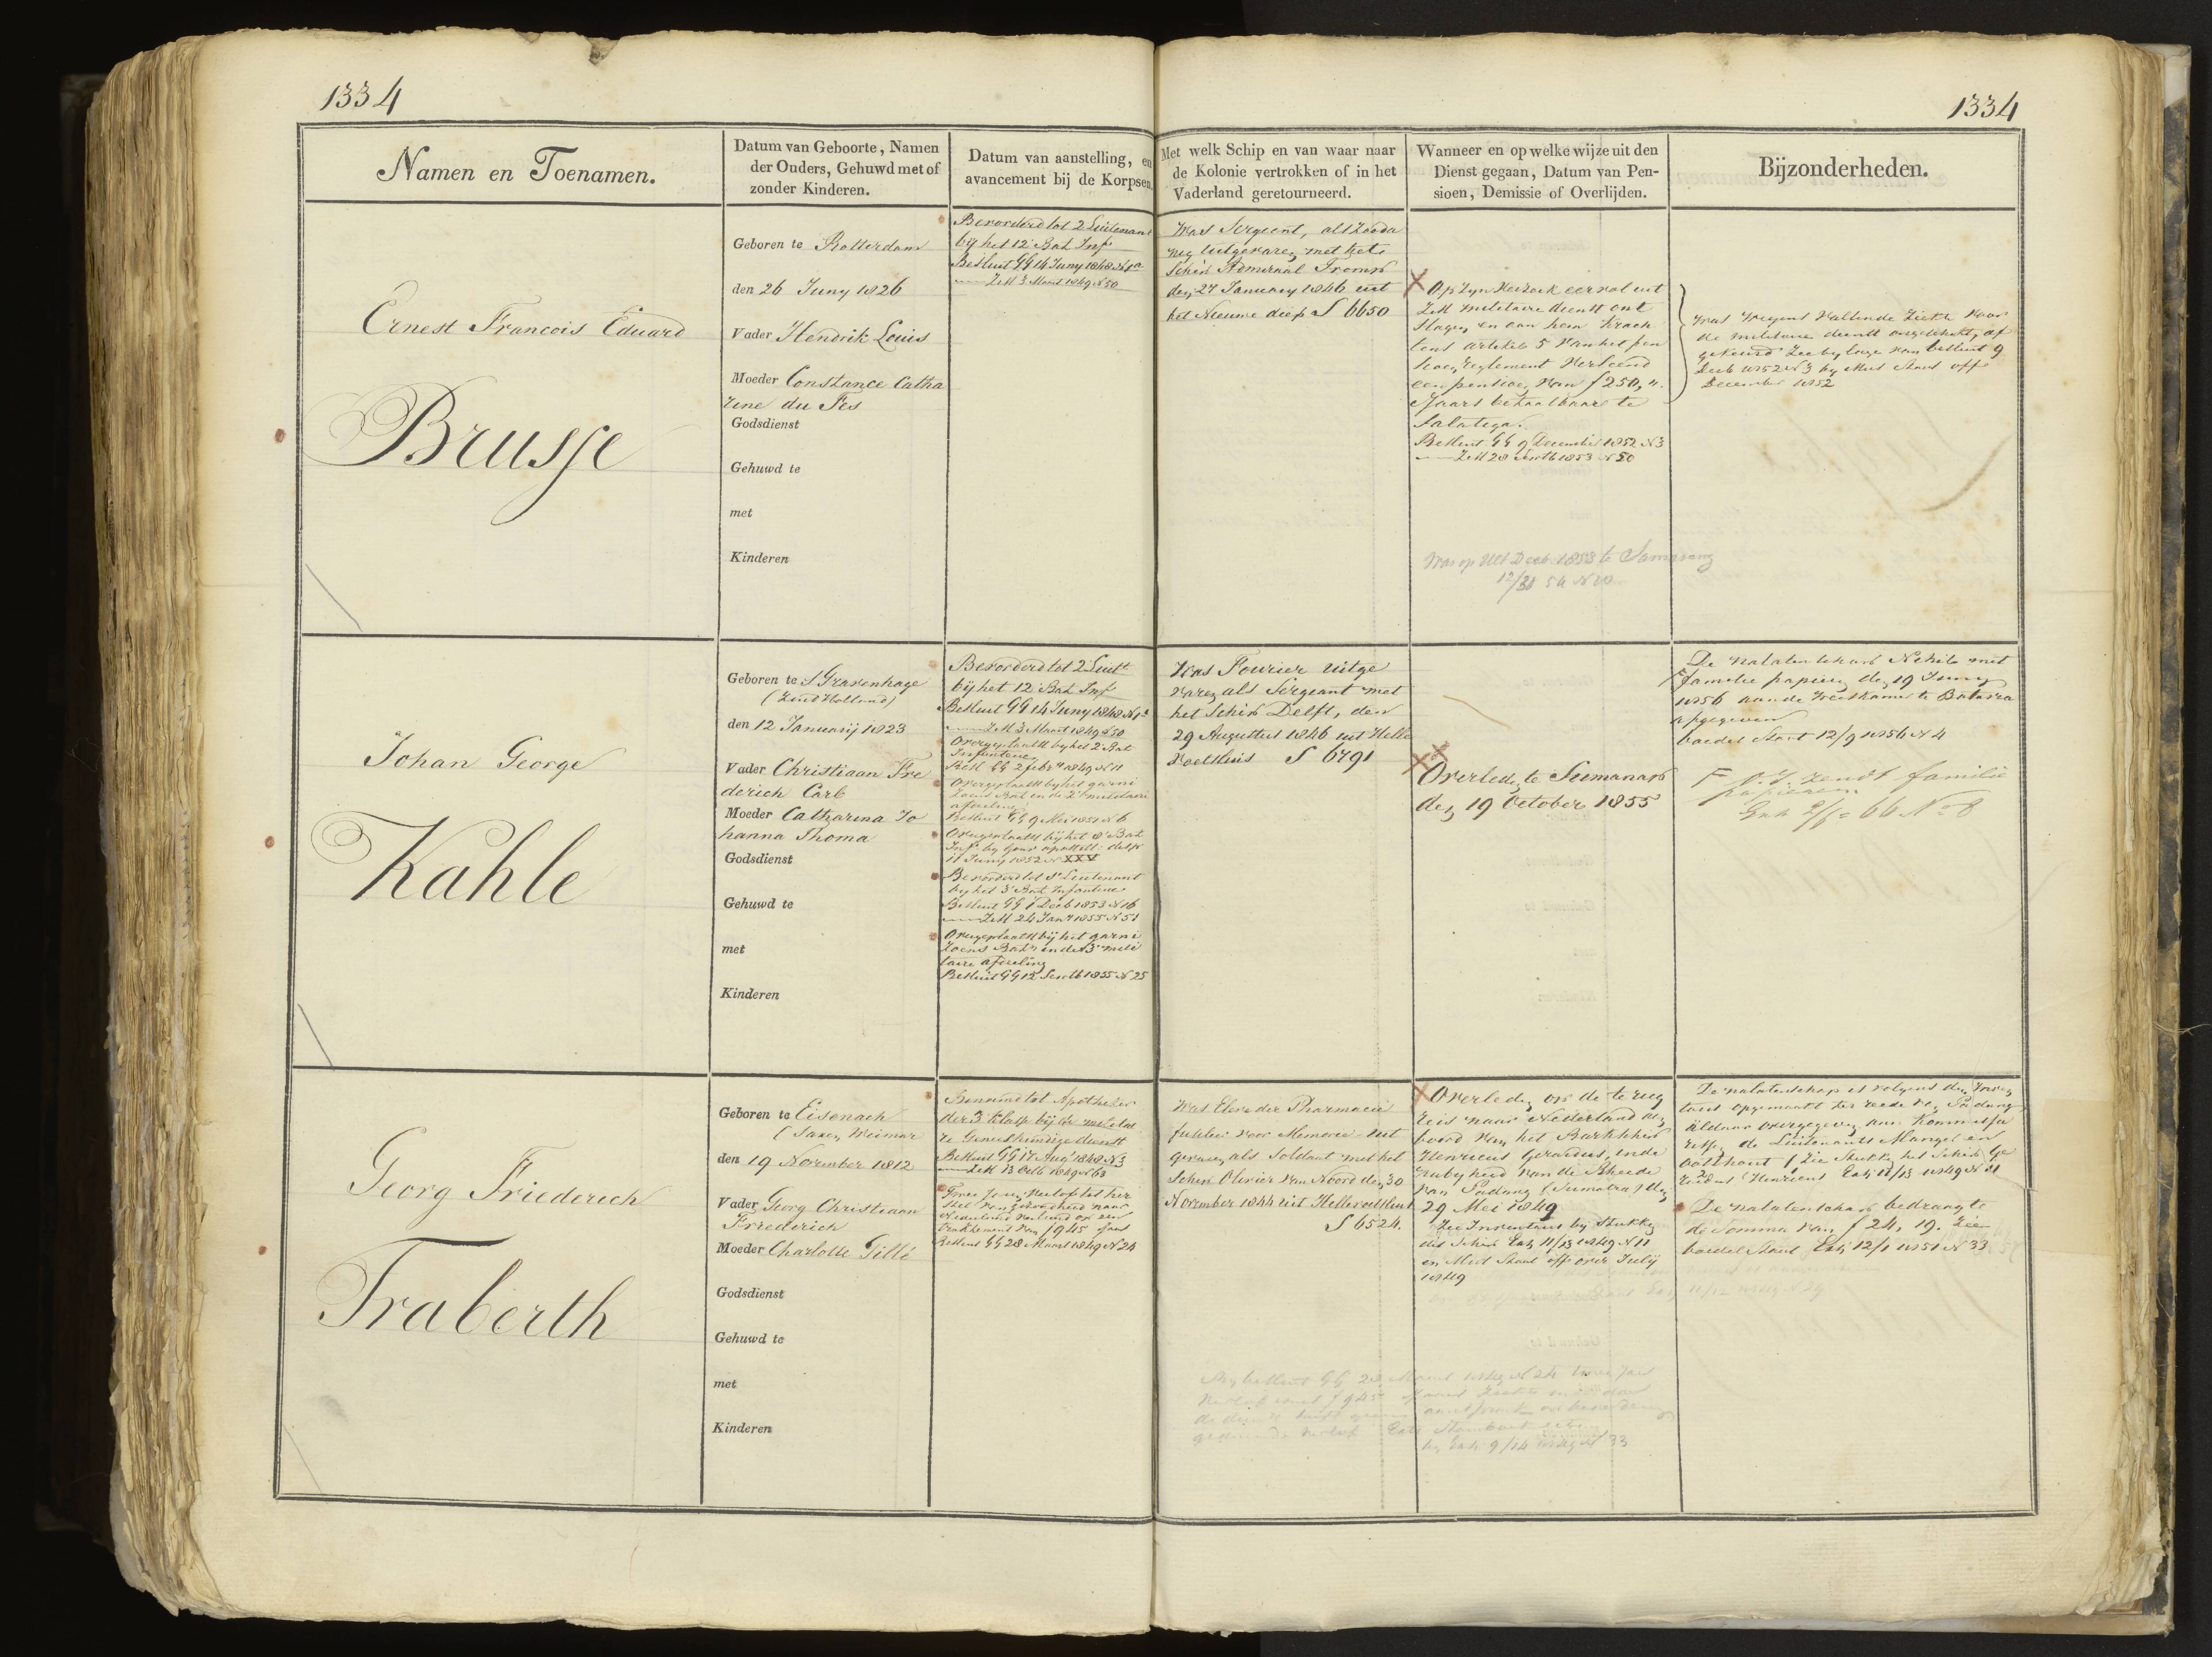 1334
1334
Namen en Toenamen.
Datum van Geboorte, Namen
der Ouders, Gehuwd met of
zonder Kinderen.
Datum van aanstelling, en
avancement bij de Korpsen.
Met welk Schip en van waar naar
de Kolonie vertrokken of in het
Vaderland geretourneerd.
Wanneer en op welke wijze uit den
Dienst gegaan, Datum van Pen-
sioen, Demissie of Overlijden.
Bijzonderheden.
Ernest Francois Eduard
Brusse
Geboren te Rotterdam
den 26 Juny 1826
Vader Hendrik Louis
Moeder Constance Catha
rine du Fes
Godsdienst
Gehuwd te
met
Kinderen
Bevorderd tot 2 Luitenant
bij het 12e Bat Inf
Besluit GG 14 Juny 1848 N1a
ZeM 3 Maart 1849 N50
Was Sergeant, alszooda
nig uitgevaren met het
Schip Admiraal Tromp
den 27 January 1846 uit
het Nieuwe diep S 6650
Op zyn verzoek eervol uit
ZeM militaire dienst ont
slagen en aan hem krach
tens artikel 5 van het pen
sioen reglement verleend
een pensioen van f 250,,
's Jaars betaalbaar te
Salatiga.
Besluit GG 9 December 1852 N3
ZeM 28 Septb 1853 N50
Was op Ult Decb 1853 te Samarang
12/31 54 N10
Was wegens vallende ziekte voor
de militaire dienst ongeschikt, af
gekeurd Zie bylage van besluit 9
Decb 1852 N3 by Mut Staat offr
December 1852
Johan George
Kahle
Geboren te 's Gravenhage
(Zuid Holland)
den 12 Januarij 1823
Vader Christiaan Fre
derich Carl
Moeder Catharina Jo
hanna Thoma
Godsdienst
Gehuwd te
met
Kinderen
Bevorderd tot 2 Luitt
bij het 12e Bat Inf
Besluit GG 14 Juny 1848 N1a
ZeM 3 Maart 1849 N50
Overgeplaatst by het 2e Bat
Infanterie
Besl GG 2 febry 1849 N11
Overgeplaatst by het garni
zoens Bat en de 2e militaire
afdeeling
Besluit GG 9 Mei 1851 N6
Overgeplaatst bij het 8e Bat
Inf by Gouv
11 Juny 1852 N XXV
Bevorderd tot 1e Luitenant
by het 3e Bat Infanterie
Besluit GG 1 Decb 1853 N16
ZeM 24 Jany 1855 N51
Overgeplaatst bij het garni
zoens Batn in de 3e mili
taire afdeeling
Besluit GG 12 Septb 1855 N25
Was Fourier uitge
varen als Sergeant met
het Schip Delft, den
29 Augustus 1846 uit Helle
voetsluis S 6791
Overleden te Sumanap
den 19 October 1855
De nalatenschap Nihil met
familie papieren den 19 Juny
1856 aan de Weeskamer te Batavia
afgegeven
boedel Staat 12/9 1856 N4
F O.I. zendt familie
papieren
Exh 2/1 = 66 No 8
Georg Friederich
Traberth
Geboren te Eisenach
(Saxen Weimar
den 19 November 1812
Vader Georg Christiaan
Friederich
Moeder Charlotte Tillé
Godsdienst
Gehuwd te
met
Kinderen
Benoemd tot Apotheker
der 3e klasse bij de militai
re Geneeskundige dienst
Besluit GG 17 Aug 1848 N3
ZeM 13 Octb 1849 N63
Twee Jaren verlof tot her
stel van gezondheid naar
Nederland verleend op een
traktement van f 945 's Jaars
Besluit GG 28 Maart 1849 N24
Was Eleve der Pharmacie
fungd. voor Memorie uit
gevaren als Soldaat met het
Schip Olivier van Noord den 30
November 1844 uit Hellevoetsluis
S 6524.
Overleden op de terug
reis naar Nederland aan
boord van het Barkschip
Henricus Gerardus, in de
nabyheid van de Rheede
van Padang (Sumatra) den
29 Mei 1849
Zie Inventaris by Stukken
dit Schip Exh 11/13 1849 N11
en Mut Staat offr over July
1849
By besluit GG 28 Maart 1849 N24 twee Jaar
verlof
by Exh 9/14 1849 N33
De nalatenschap is volgens den Inven
taris opgemaakt ter reede van Padang
aldaar overgegeven aan Kommissa
rissen de Luitenants Mangel en
Oosthout / Zie Stukken het Schip Ge
rardus Henricus Exh 11/13 1849 N11
De nalatenschap bedraagt
de Somma van f 24,19. Zie
boedel Staat Exh 12/1 1851 N33